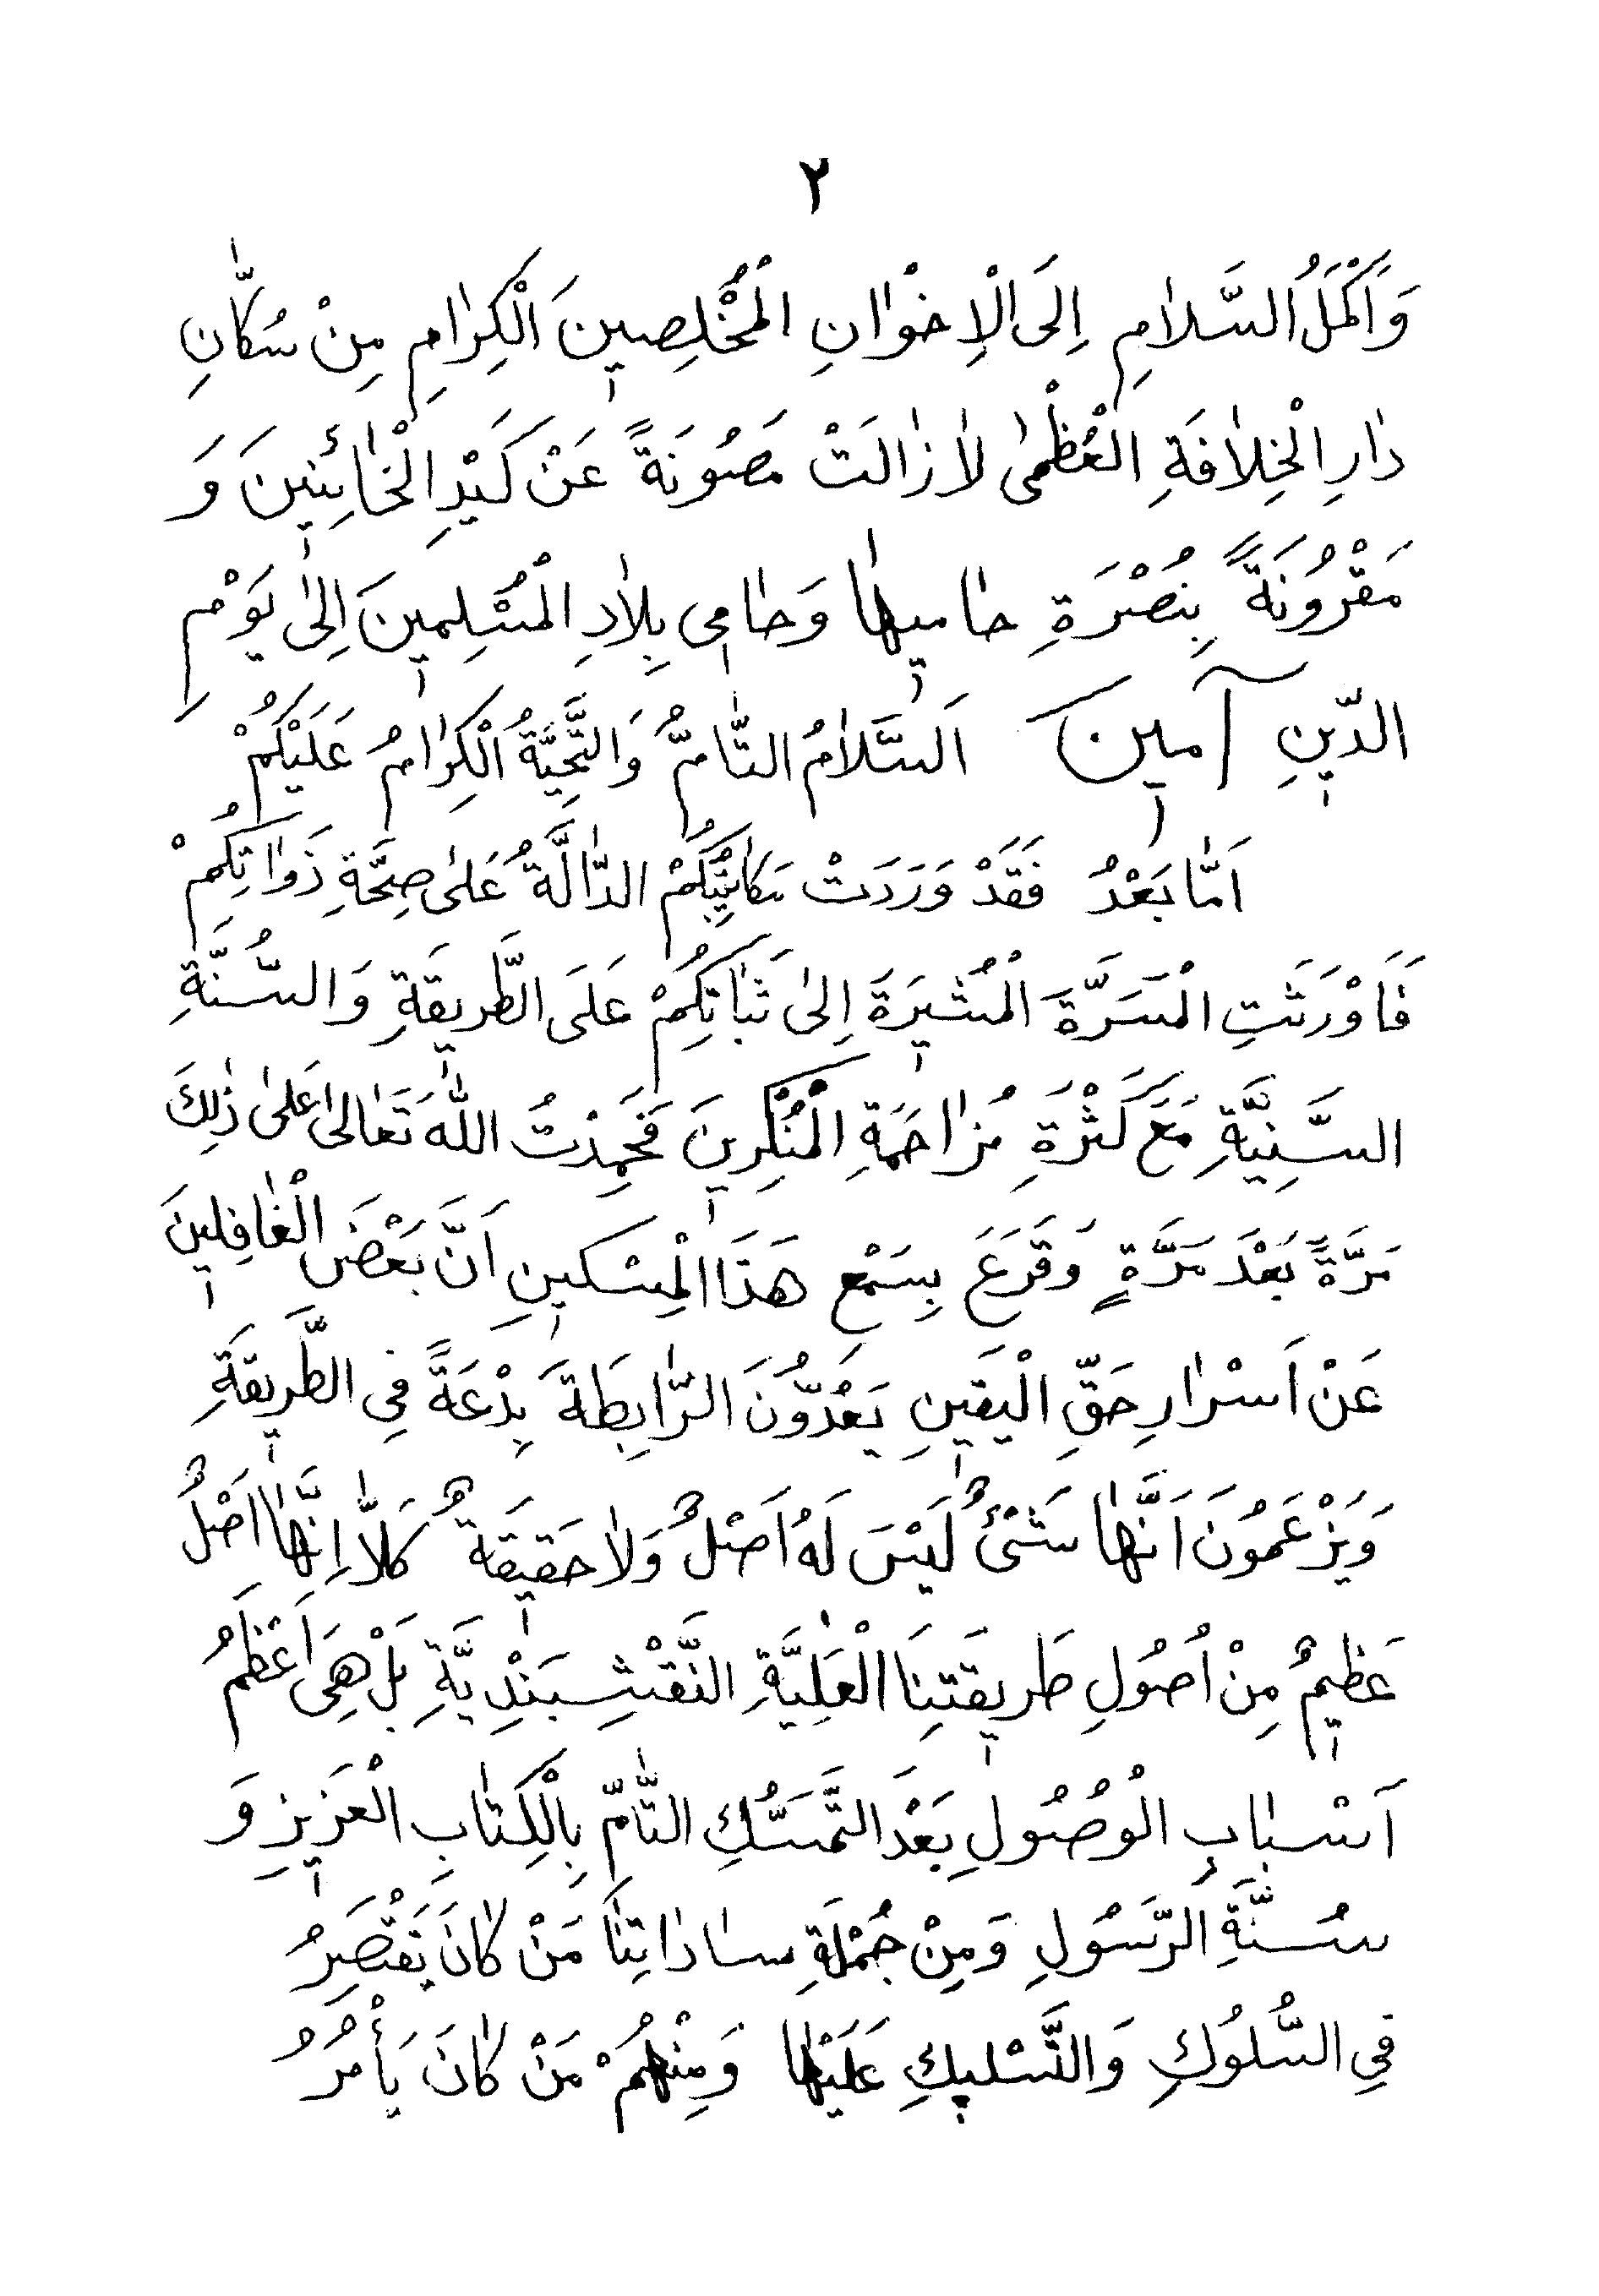 ٢
وَاَكْمَلُ السَّلَامِ اِلَى الْاِخْوَانِ الْمُخْلِصِينَ الْكِرَامِ مِنْ سُكَّانِ
دَارِ الْخِلَافَةِ الْعُظْمٰى لَا زَالَتْ مَصُونَةً عَنْ كَيْدِ الْخَائِنِينَ وَ
مَقْرُونَةً بِنُصْرَةِ حَامِيهَا وَحَامِى بِلَادِ الْمُسْلِمِينَ اِلٰى يَوْمِ
الدِّينِ آمِينَ اَلسَّلَامُ التَّامُّ وَالتَّحِيَّةُ الْكِرَامُ عَلَيْكُمْ
اَمَّا بَعْدُ فَقَدْ وَرَدَتْ مَكَاتِيبُكُمْ الدَّالَّةُ عَلٰى صِحَّةِ ذَوَاتِكُمْ
فَاَوْرَثَتِ الْمَسَرَّةَ الْمُشِيرَةَ اِلٰى ثَبَاتِكُمْ عَلَى الطَّرِيقَةِ وَالسُّنَّةِ
السَّنِيَّةِ مَعَ كَثْرَةِ مُزَاحَمَةِ الْمُنْكِرِينَ فَحَمِدْتُ اللّٰهَ تَعَالٰى عَلٰى ذٰلِكَ
مَرَّةً بَعْدَ مَرَّةٍ وَقَرَعَ بِسَمْعِ هَذَا الْمِسْكِينِ اَنَّ بَعْضَ الْغَافِلِينَ
عَنْ اَسْرَارِ حَقِّ الْيَقِينِ يَعُدُّونَ الرَّابِطَةَ بِدْعَةً فِى الطَّرِيقَةِ
وَيَزْعَمُونَ اَنَّهَا شَىْءٌ لَيْسَ لَهُ اَصْلٌ وَلَا حَقِيقَةٌ كَلَّا اِنَّهَا اَصْلٌ
عَظِيمٌ مِنْ اُصُولِ طَرِيقَتِنَا الْعَلِيَّةِ النَّقْشِبَنْدِيَّةِ بَلْ هِىَ اَعْظَمُ
اَسْبَابِ الْوُصُولِ بَعْدَ التَّمَسُّكِ التَّامِّ بِالْكِتَابِ الْعَزِيزِ وَ
سُنَّةِ الرَّسُولِ وَمِنْ جُمْلَةِ سَادَاتِنَا مَنْ كَانَ يَقْتَصِرُ
فِى السُّلُوكِ وَالتَّسْلِيكِ عَلَيْهَا وَمِنْهُمْ مَنْ كَانَ يَأْمُرُ